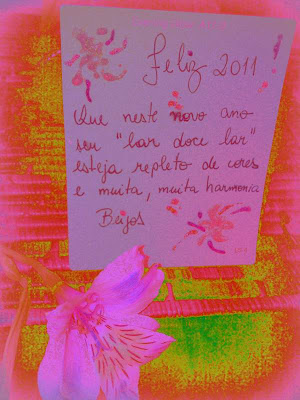 Feliz 2011
Que neste novo ano
seu "lar doce lar"
esteja repleto de cores
e muita, muita harmonia
Beijos